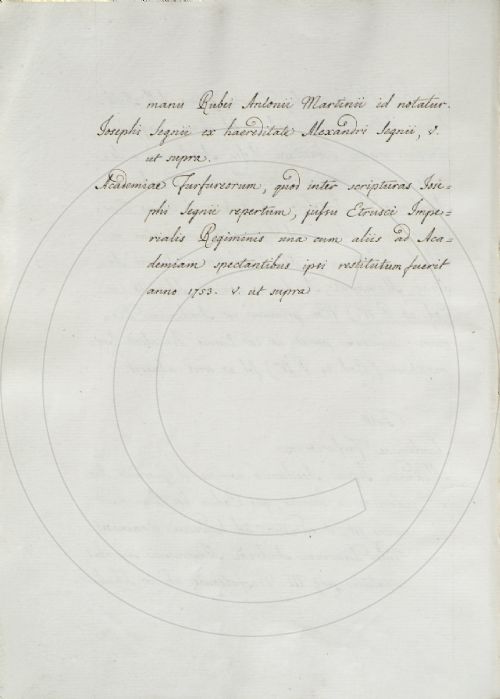 manu Rubei Antonii Martinii id notatur.
Josephi Segnii ex haereditate Alexandri Segnii, v.
ut supra.
Academiae Furfureorum, quod inter scripturas Jose=
phii Segnii repertum, jussu Etrusci Impe=
rialis Regiminis una cum aliis ad Aca=
demiam spectantibus ipsi restitutum fuerit
anno 1753. v. ut supra